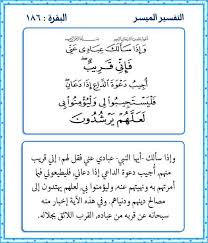 التفسير الميسر
البقرة : ١٨٦
وَإِذَا سَأَلَكَ عِبَادِي عَنِّي
فَإِنِّي قَرِيبٌ
أُجِيبُ دَعْوَةَ الدَّاعِ إِذَا دَعَانِ
فَلْيَسْتَجِيبُوا لِي وَلْيُؤْمِنُوا بِي
لَعَلَّهُمْ يَرْشُدُونَ
وإذا سألك -أيها النبي- عبادي عني فقل لهم: إني قريب
منهم, أجيب دعوة الداعي إذا دعاني, فليطيعوني فيما
أمرتهم به ونهيتهم عنه, وليؤمنوا بي, لعلهم يهتدون إلى
مصالح دينهم ودنياهم. وفي هذه الآية إخبار منه
سبحانه عن قربه من عباده, القرب اللائق بجلاله.